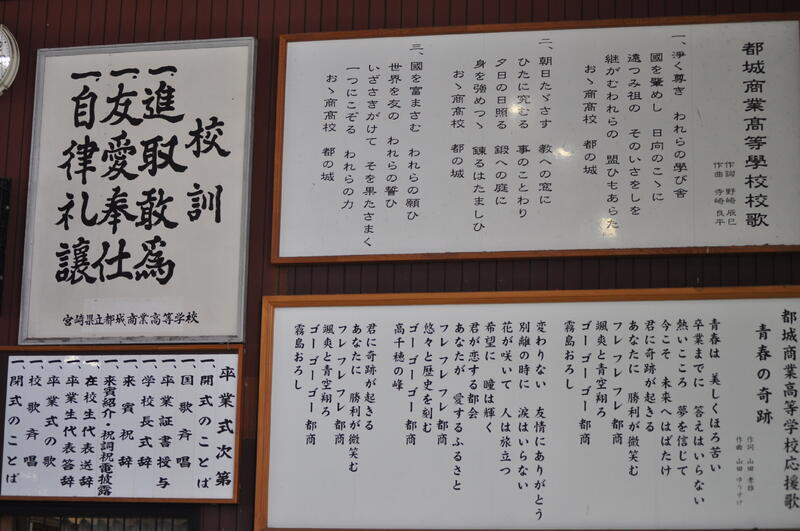 校訓
一、進取敢為
一、友愛奉仕
一、自律礼譲
宮崎県立都城商業高等学校
都城商業高等學校校歌
作詞 野崎辰巳
作曲 寺崎良平
一、淨く尊き われらの學び舎
國を肇めし 日向のこゝに
遠つみ祖の そのいさをしを
継がむわれらの 盟ひもあらた
おゝ商高校 都の城
二、朝日たゞさす 教への窓に
ひたに究むる 事のことわり
夕日の日照る 鍛への庭に
身を強めつゝ 錬るはたましひ
おゝ商高校 都の城
三、國を富まさむ われらの願ひ
世界を友の われらの誓ひ
いざさきがけて そを果たさまく
一つにこぞる われらの力
おゝ商高校 都の城
卒業式次第
一、開式のことば
一、国歌斉唱
一、卒業証書授与
一、学校長式辞
一、来賓祝辞
一、来賓紹介・祝詞祝電披露
一、在校生代表送辞
一、卒業生代表答辞
一、卒業式の歌
一、校歌斉唱
一、閉式のことば
都城商業高等学校応援歌
青春の奇跡
作詞 山田孝雄
作曲 山田ゆうすけ
青春は 美しくほろ苦い
卒業までに 答えはいらない
熱いこころ 夢を信じて
今こそ 未来へはばたけ
君に奇跡が起きる
あなたに 勝利が微笑む
フレ フレ フレ 都商
颯爽と青空翔ろ
ゴーゴーゴー 都商
霧島おろし
変わりない 友情にありがとう
別離の時に 涙はいらない
花が咲いて 人は旅立つ
希望に 瞳は輝く
君が恋する都会
あなたが 愛するふるさと
フレ フレ フレ 都商
悠々と歴史を刻む
ゴーゴーゴー 都商
高千穂の峰
君に奇跡が起きる
あなたに 勝利が微笑む
フレ フレ フレ 都商
颯爽と青空翔ろ
ゴーゴーゴー 都商
霧島おろし